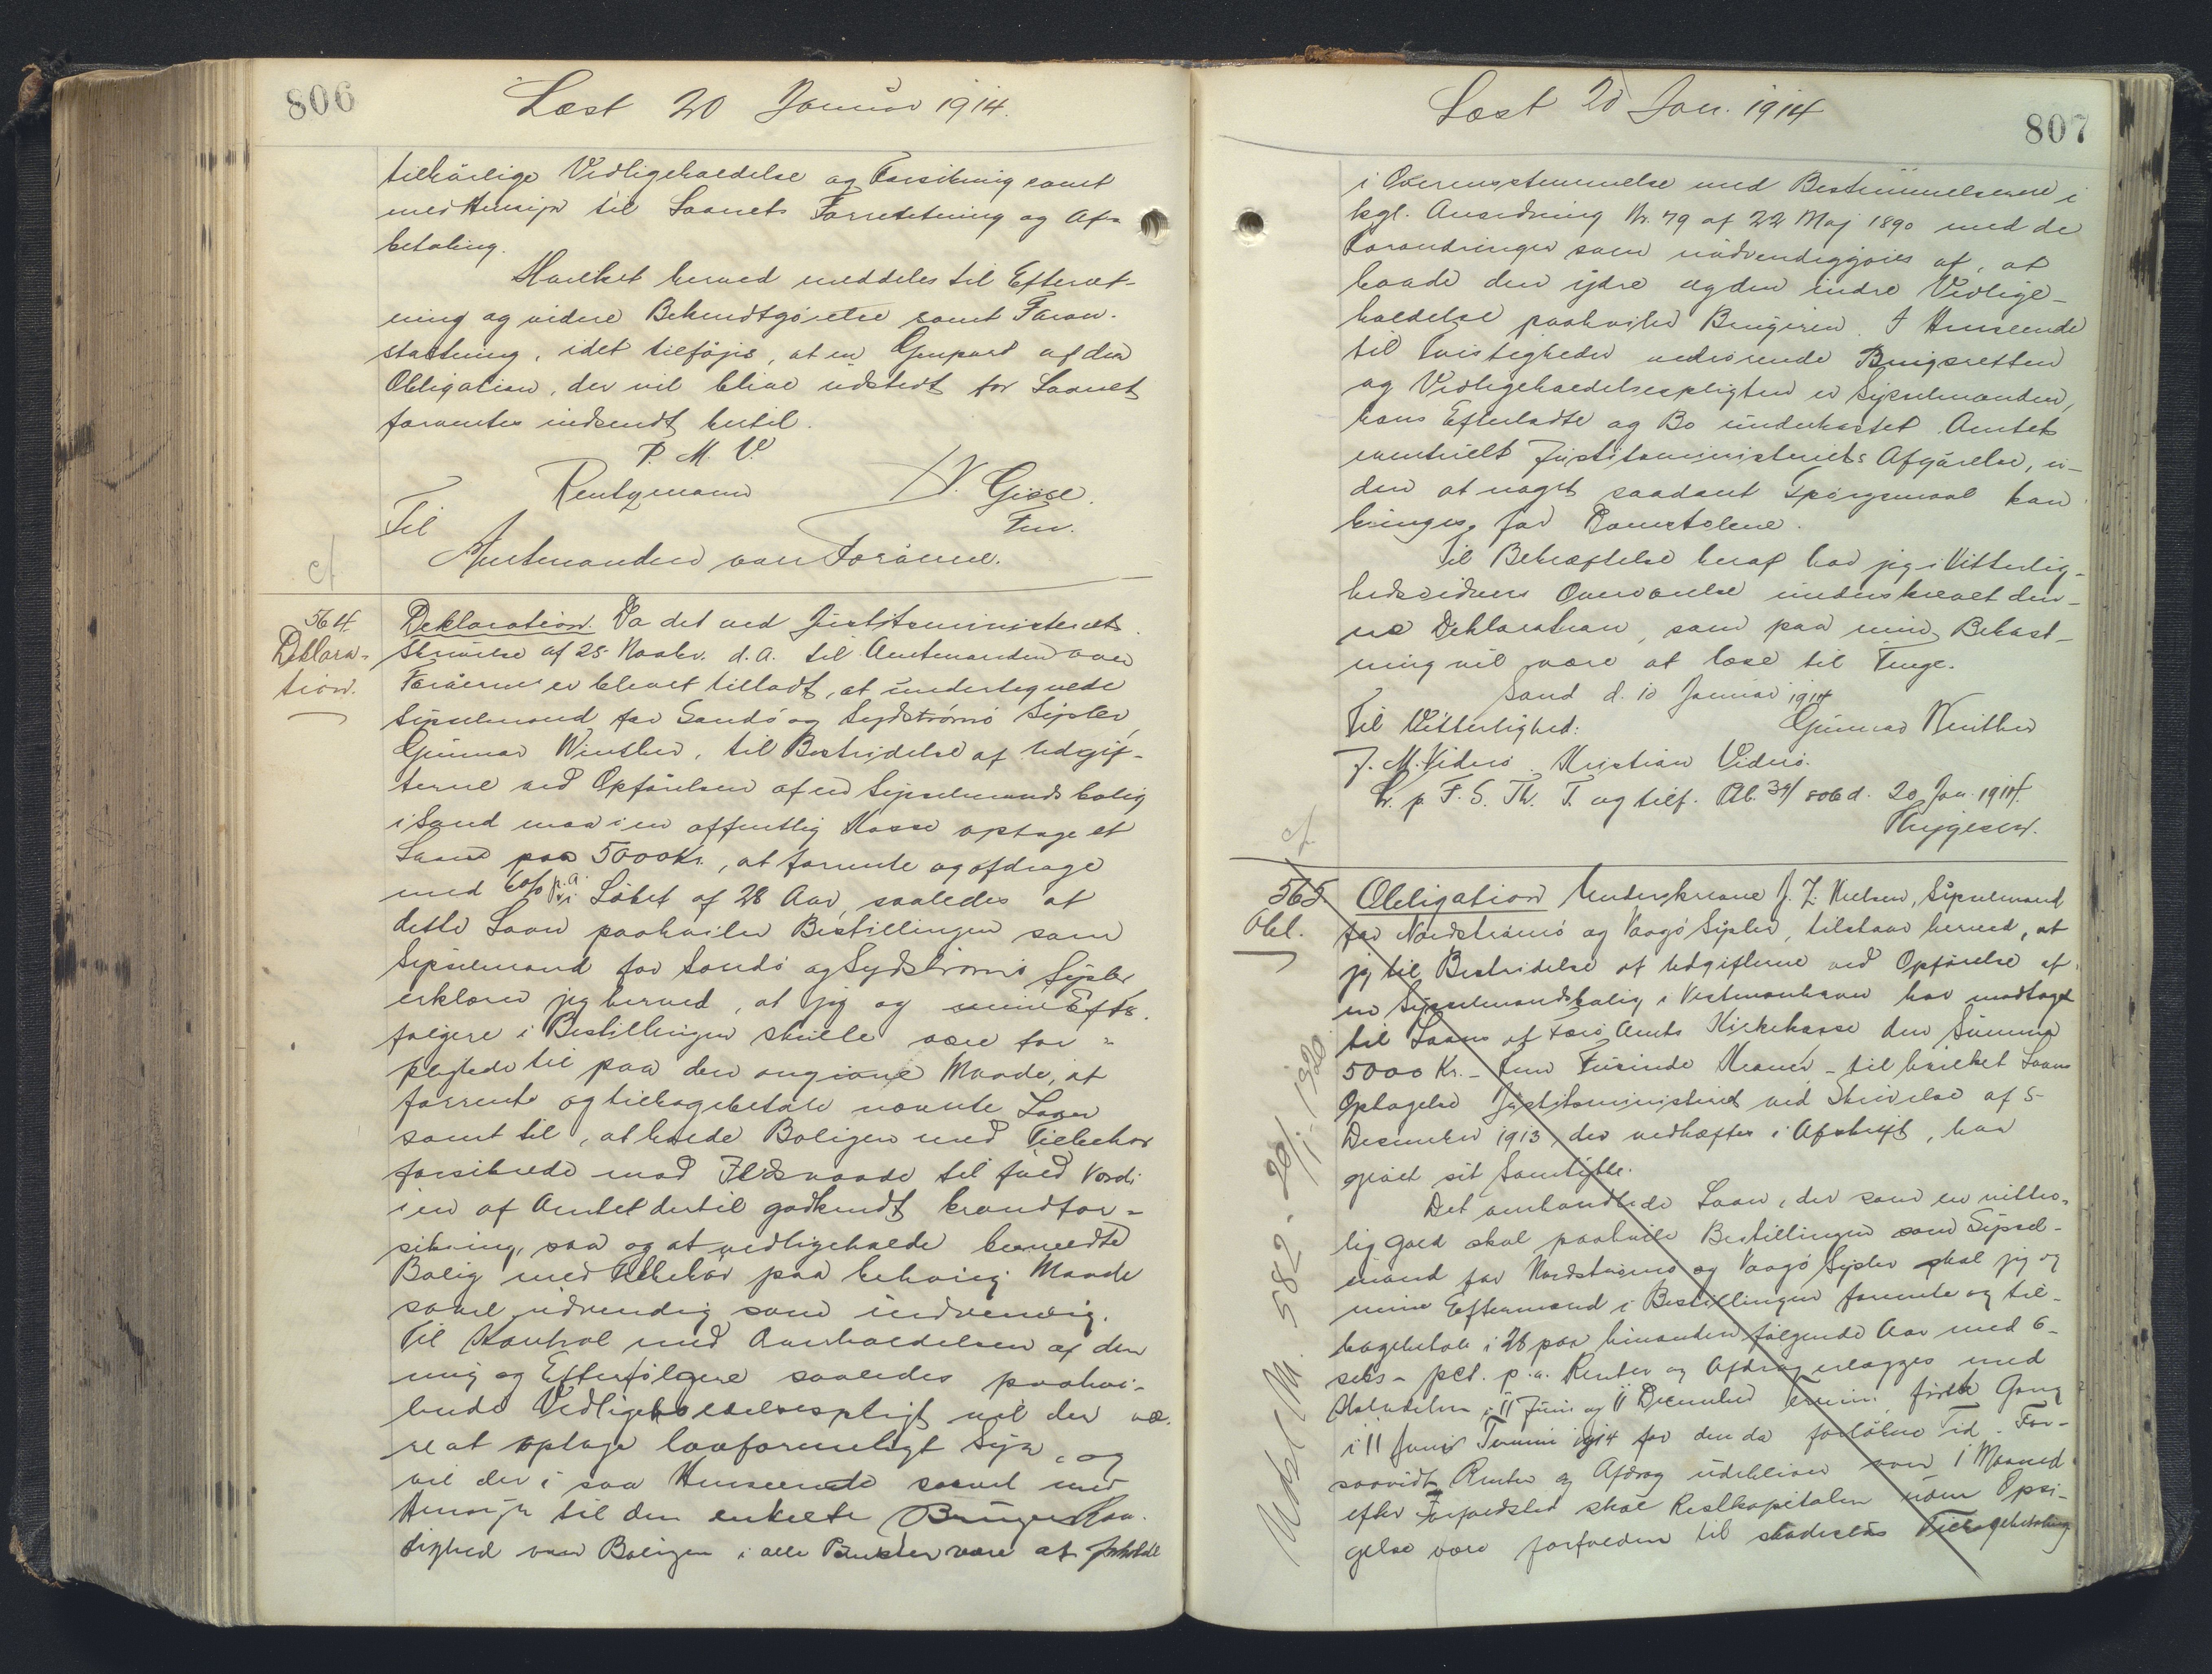 806
Læst 20 Januar 1914.
tilbørlige Vedligeholdelse og Forsikring samt
med Hensyn til Laanets Forrentning og Af-
betaling.
Hvilket herved meddeles til Efterret-
ning og videre Bekendtgørelse samt Foran-
staltning, idet tilføjes, at en Genpart af den
Obligation, der vil blive udstedt for Laanet
forventes indsendt hertil.
P. M. V.
Rentzmann
Fm.
Til
Amtmanden over Færøerne.
cf
564.
Deklara-
tion.
Deklaration. Da det ved Justitsministeriets
Skrivelse af 25 Novbr. d.A. til Amtmanden over
Færøerne er blevet tilladt, at undertegnede
Sysselmand for Sandø og Sydstrømø Sysler,
Gunnar Winther, til Bestridelse af Udgif-
terne ved Opførelsen af en Sysselmandsbolig
i Sand maa i en offentlig Kasse optage et
Laan paa 5000 Kr., at forrente og afdrage
med 6 o/o p.a. i Løbet af 28 Aar, saaledes at
dette Laan paahviler Bestillingen som
Sysselmand for Sandø og Sydstrømø Sysler
erklærer jeg herved, at jeg og mine Efter-
følgere i Bestillingen skulle være for-
pligtede til paa den angivne Maade, at
forrente og tilbagebetale nævnte Laan
samt til, at holde Boligen med Tilbehør
forsikrede mod Ildsvaade til fuld Værdi
i en af Amtet dertil godkendt brandfor-
sikring, saa og at vedligeholde bemeldte
Bolig med Tilbehør paa behørig Maade
saavel udvendig som indvendig.
Til Kontrol med Overholdelsen af den
mig og Efterfølgere saaledes paahvi-
lende Vedligeholdelsespligt vil der væ-
re at optage lovformeligt Syn, og
vil der i saa Henseende saavel med
Hensyn til den enkelte Brugers Raa-
dighed over Boligen i alle Punkter være at forholde
807
Læst 20 Jan. 1914
i Overensstemmelse med Bestemmelserne i
kgl. Anordning Nr. 79 af 22 Maj 1890 med de
Forandringer som nødvendiggjøres af, at
baade den ydre og den indre Vedlige-
holdelse paahviler Brugeren. I Henseende
til Tvistigheder vedrørende Brugsretten
og Vedligeholdelsespligten er Sysselmanden,
hans Efterladte og Bo underkastet Amtets
eventuelt Justitsministeriets Afgørelse, u-
den at noget saadant Spørgsmaal kan
bringes for Domstolene.
Til Bekræftelse heraf har jeg i Vitterlig-
hedsvidners Overværelse underskrevet den-
ne Deklaration, som paa min Bekost-
ning vil være at læse til Tinge.
Sand d. 10 Januar 1914
Til Vitterlighed: Gunnar Winther
J. M. Viderø. Kristian Viderø.
L. p. F. S. Th. T. og tilf. Pb. 34/806 d. 20 Jan. 1914.
Thygesen.
cf
565
Obl.
Obligation Underskrevne J. Z. Nielsen, Sysselmand
for Nordstrømø og Vaagø Sysler, tilstaar herved, at
jeg til Bestridelse af Udgifterne ved Opførelse af
en Sysselmandsbolig i Vestmanhavn har modtaget
til Laans af Færø Amts Kirkekasse den Summa
5000 Kr. - Fem Tusinde Kroner - til hvilket Laans
Optagelse Justitsministeriet ved Skrivelse af 5
December 1913, der vedhæftes i Afskrift, har
givet sit Samtykke.
Det omhandlede Laan, der som en vitter-
lig Gæld skal paahvile Bestillingen som Syssel-
mand for Nordstrømø og Vaagø Sysler skal jeg og
mine Eftermænd i Bestillingen forrente og til-
bagebetale i 28 paa hinanden følgende Aar med 6 -
seks - pCt. p. a. Renter og Afdrag erlægges med
Halvdelen i 11 Juni og 11 December Termin, første Gang
i 11 Juni Termin 1914 for den da forløbne Tid. For-
saavidt Renter og Afdrag udebliver over 1 Maaned
efter Forfaldstid skal Restkapitalen uden Opsi-
gelse være forfalden til skadesløs Tilbagebetaling
Udsl. M. 582 - 20/1 - 1920.